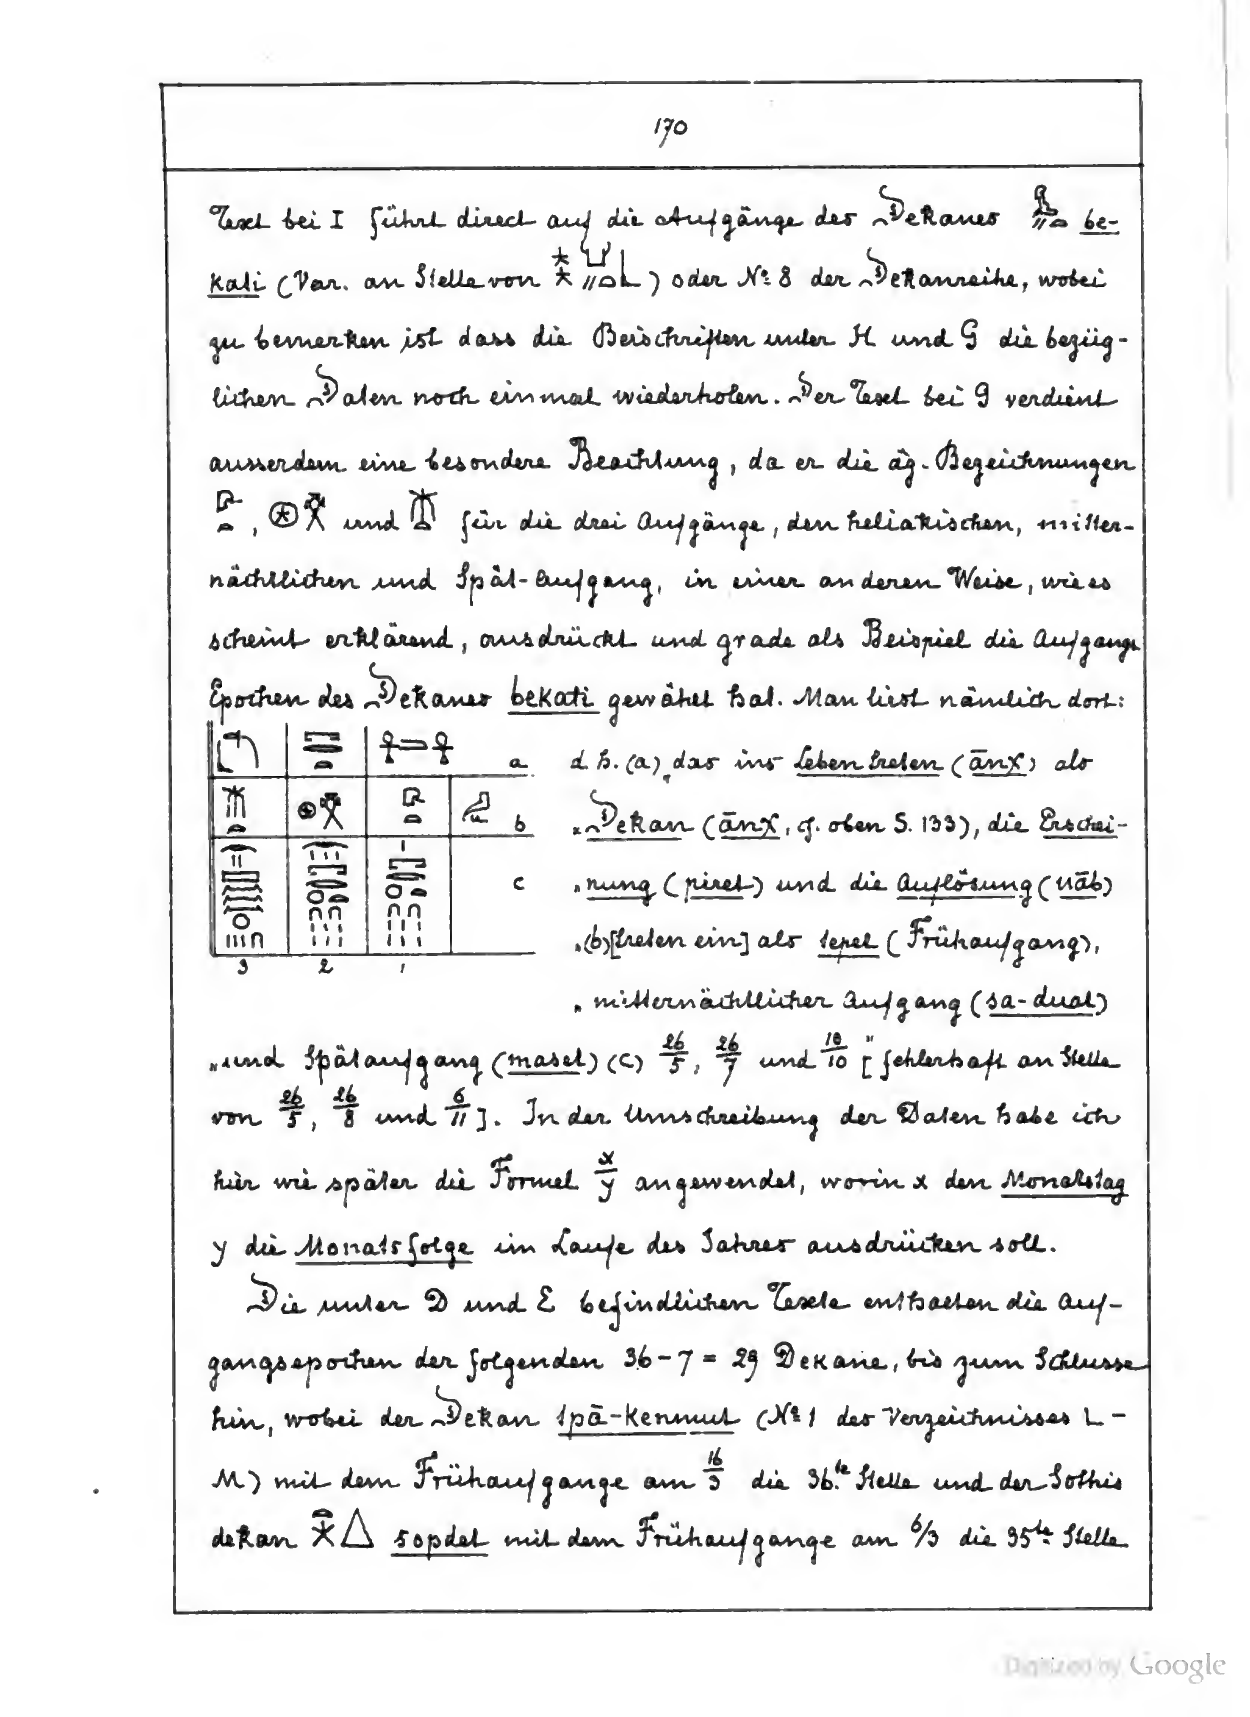 170
Text bei I führt direct auf die Aufgänge des Dekanes be-
kati (Var. an Stelle von ) oder No. 8 der Dekanreihe, wobei
zu bemerken ist dass die Beischriften unter H und G die bezüg-
lichen Daten noch einmal wiederholen. Der Text bei G verdient
ausserdem eine besondere Beachtung, da er die äg. Bezeichnungen
, und für die drei Aufgänge, den heliakischen, mitter-
nächtlichen und Spät-Aufgang, in einer anderen Weise, wie es
scheint erklärend, ausdrückt und grade als Beispiel die Aufgangs
Epochen des Dekanes bekati gewählt hat. Man liest nämlich dort:
a d. h. (a) „das ins Leben treten (ānχ) als
b „Dekan (ānχ, cf. oben S. 133), die Erschei-
c „nung (piret) und die Auflösung (uāb)
„(b)[treten ein] als tepet (Frühaufgang),
3 2 1
„ mitternächtlicher Aufgang (sa-duat)
„und Spätaufgang (maset) (c) 26/5, 26/7 und 18/10 " [fehlerhaft an Stelle
von 26/5, 26/8 und 6/11]. In der Umschreibung der Daten habe ich
hier wie später die Formel x/y angewendet, worin x den Monatstag
y die Monatsfolge im Laufe des Jahres ausdrücken soll.
Die unter D und E befindlichen Texte enthalten die Auf-
gangsepochen der folgenden 36-7 = 29 Dekane, bis zum Schlusse
hin, wobei der Dekan tpā-kenmut (No. 1 des Verzeichnisses L-
M) mit dem Frühaufgange am 16/3 die 36.te Stelle und der Sothis
dekan sopdet mit dem Frühaufgange am 6/3 die 35te Stelle
Digitized by Google